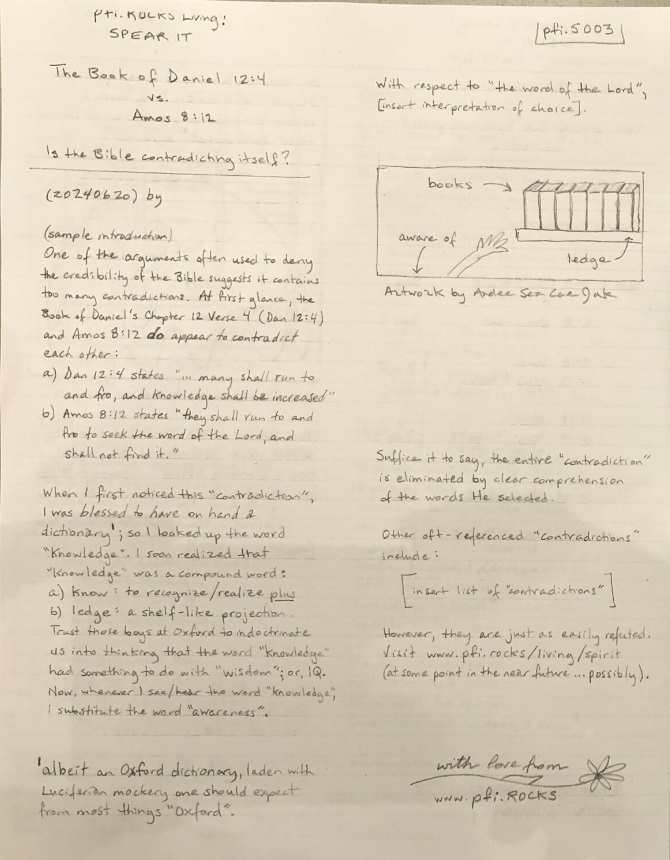 pfi.ROCKS Living!
SPEAR IT
pfi.5003
The Book of Daniel 12:4
vs.
Amos 8:12
Is the Bible contradicting itself?
(20240620) by
(sample introduction)
One of the arguments often used to deny
the credibility of the Bible suggests it contains
too many contradictions. At first glance, the
Book of Daniel's Chapter 12 Verse 4 (Dan 12:4)
and Amos 8:12 do appear to contradict
each other:
a) Dan 12:4 states "... many shall run to
and fro, and knowledge shall be increased"
b) Amos 8:12 states "they shall run to and
fro to seek the word of the Lord, and
shall not find it."
When I first noticed this "contradiction",
I was blessed to have on hand a
dictionary¹; so I looked up the word
"Knowledge". I soon realized that
"Knowledge" was a compound word:
a) know: to recognize/realize plus
b) ledge: a shelf-like projection.
Trust those boys at Oxford to indoctrinate
us into thinking that the word "knowledge"
had something to do with "wisdom"; or, IQ.
Now, whenever I see/hear the word "knowledge",
I substitute the word "awareness".
¹albeit an Oxford dictionary, laden with
Luciferian mockery one should expect
from most things "Oxford".
With respect to "the word of the Lord",
[insert interpretation of choice].
books
aware of
ledge
Artwork by
Suffice it to say, the entire "contradiction"
is eliminated by clear comprehension
of the words He selected.
Other oft-referenced "contradictions"
include:
[insert list of "contradictions"]
However, they are just as easily refuted.
Visit www.pfi.rocks/living/spirit
(at some point in the near future ... possibly).
with love from
www.pfi.ROCKS